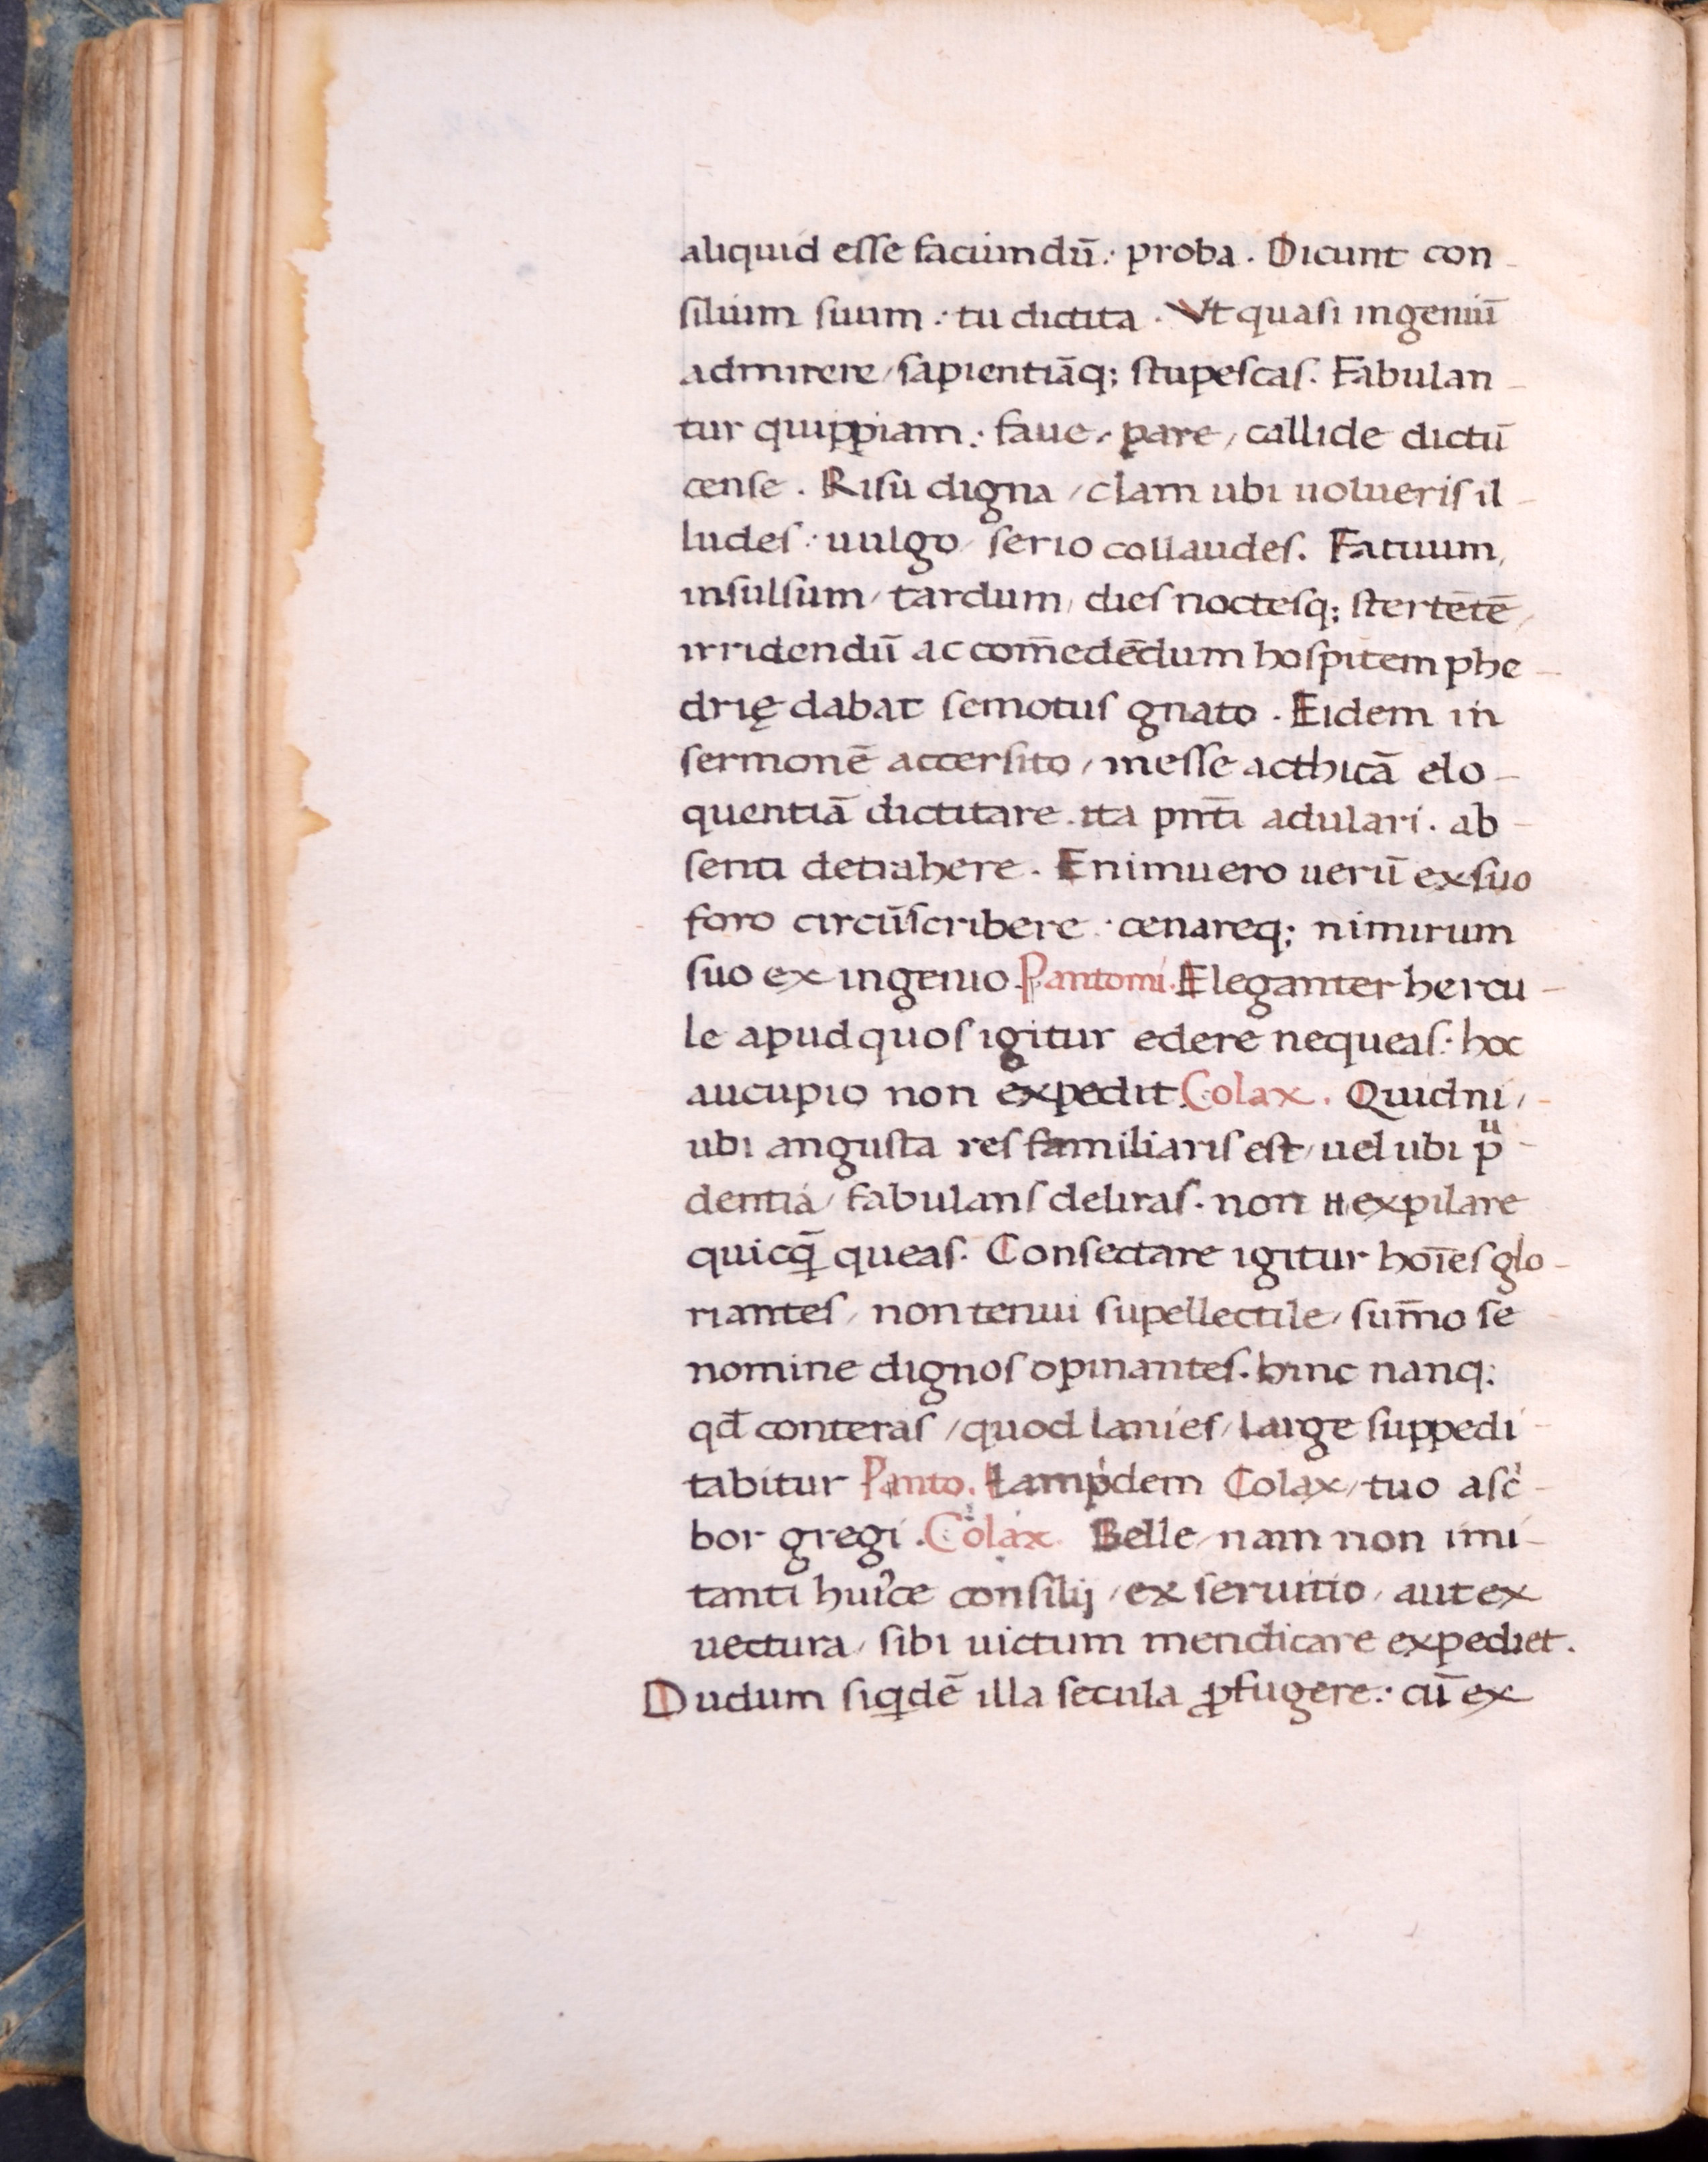 aliquid esse faciundū: proba. Dicunt con-
silium suum: tu dictita. Vt quasi ingeniū
admirere/ sapientiāq; stupescas. Fabulan-
tur quippiam: faue, pare, callide dictū
cense. Risu digna/ clam ubi uolueris il-
ludes: uulgo/ serio collaudes. Fatuum,
insulsum/ tardum, dies noctesq; stertētē/
irridendū ac com̄edēdum hospitem phe-
drię dabat semotus gnato. Eidem in
sermonē accersito/ inesse acthicā elo-
quentiā dictitare. ita pn̄ti adulari. ab-
senti detrahere. Enimuero uerū ex suo
foro circūscribere: cenareq; nimirum
suo ex ingenio. Pantomi. Eleganter hercu-
le apud quos igitur edere nequeas: hoc
aucupio non expedit. Colax. Quidni/
ubi angusta res familiaris est/ uel ubi pͧ-
dentia/ fabulans deliras. non expilare
quicq̄ queas. Consectare igitur hoīes glo-
riantes/ non tenui supellectile/ sum̄o se
nomine dignos opinantes. hinc nanq;
qd̄ conteras/ quod lanies/ large suppedi-
tabitur Panto. Iampͥdem Colax/ tuo ascͥ-
bor gregi. Colax. Belle/ nam non imi-
tanti huiꝰce consilij/ ex seruitio/ aut ex
uectura/ sibi uictum mendicare expediet.
Dudum siqͥdē illa secula ꝓfugere: cū ex